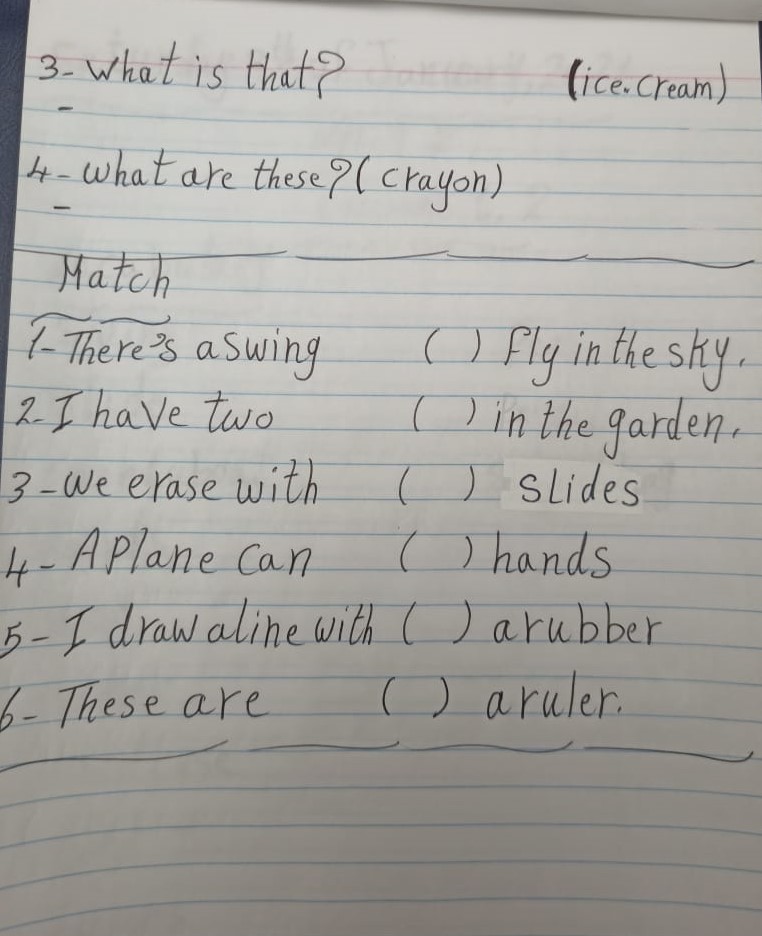 3- What is that? (ice.cream)
-
4- what are these? (crayon)
-
Match
1- There's a swing ( ) fly in the sky.
2- I have two ( ) in the garden.
3- we erase with ( ) slides
4- A plane can ( ) hands
5- I draw a line with ( ) a rubber
6- These are ( ) a ruler.